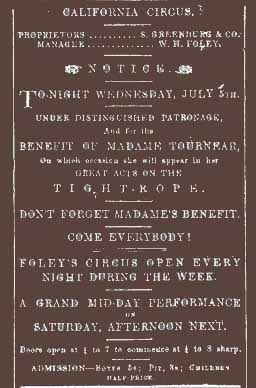 CALIFORNIA CIRCUS,
PROPRIETORS .......... S. GREENBURG & CO.
MANAGER ............. W. H. FOLEY.
NOTICE.
TO-NIGHT WEDNESDAY, JULY 5TH.
UNDER DISTINGUISHED PATRONAGE,
And for the
BENEFIT OF MADAME TOURNEAR,
On which occasion she will appear in her
GREAT ACTS ON THE
TIGHT-ROPE.
DON'T FORGET MADAME'S BENEFIT.
COME EVERYBODY!
FOLEY'S CIRCUS OPEN EVERY
NIGHT DURING THE WEEK.
A GRAND MID-DAY PERFORMANCE
ON
SATURDAY, AFTERNOON NEXT.
Doors open at ¼ to 7 to commence at ¼ to 8 sharp.
ADMISSION—BOXES 5s; PIT, 3s; CHILDREN
HALF-PRICE